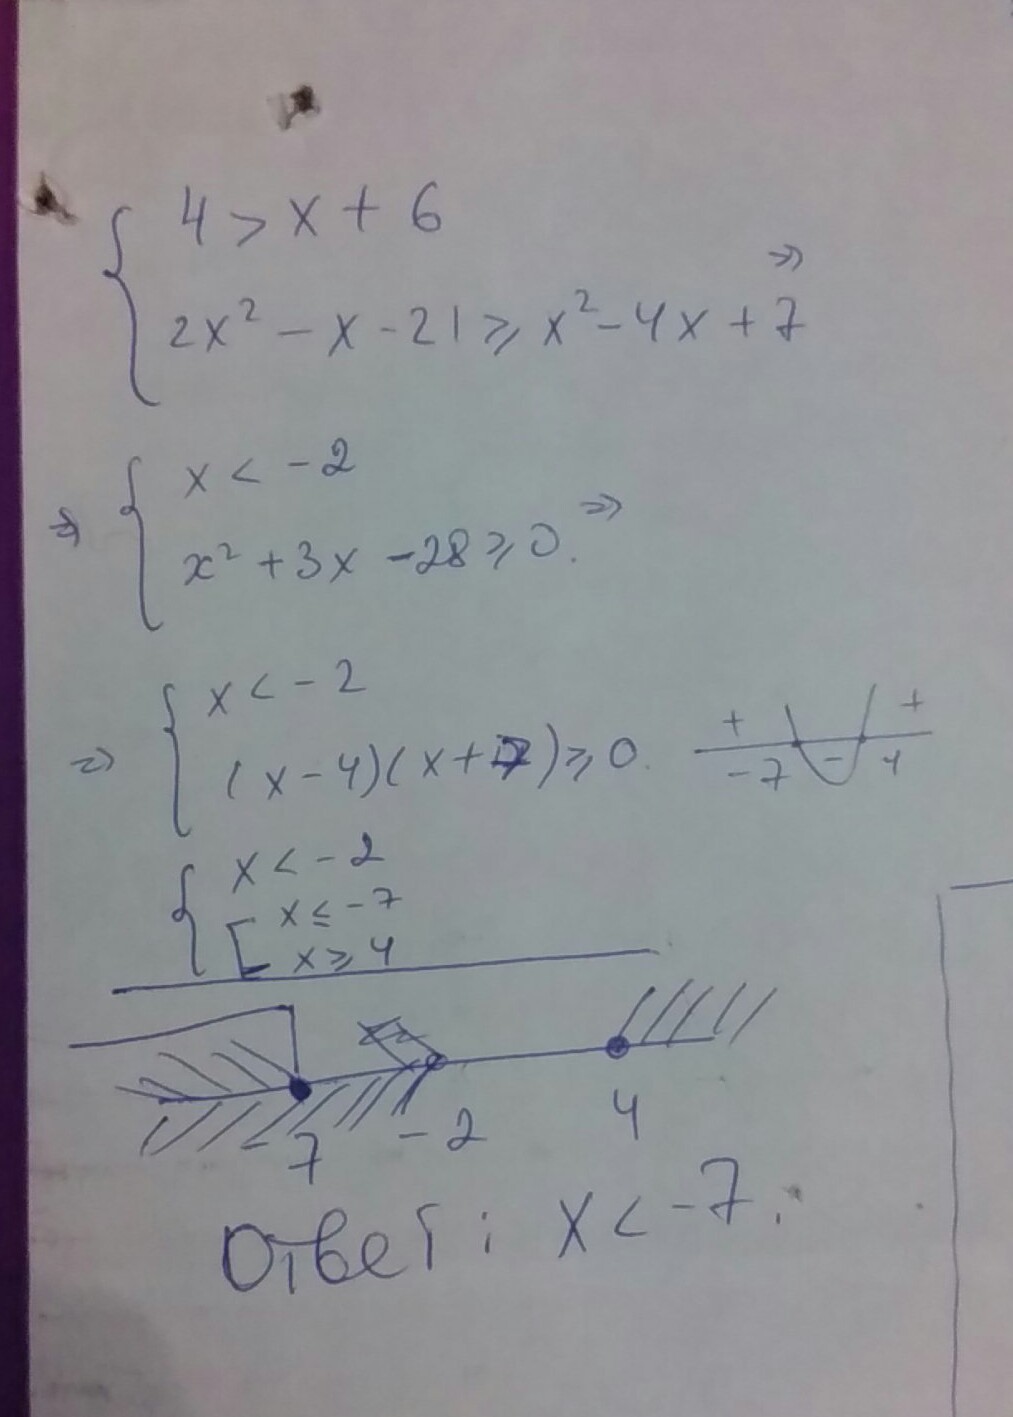 4 > x + 6
2x² - x - 21 ≥ x² - 4x + 7 ⇒
⇒ x < -2
x² + 3x - 28 ≥ 0. ⇒
⇒ x < -2
(x - 4)(x + 7) ≥ 0. + - + -7 4
x < -2
x ≤ -7
x ≥ 4
-7 -2 4
Ответ: x < -7.